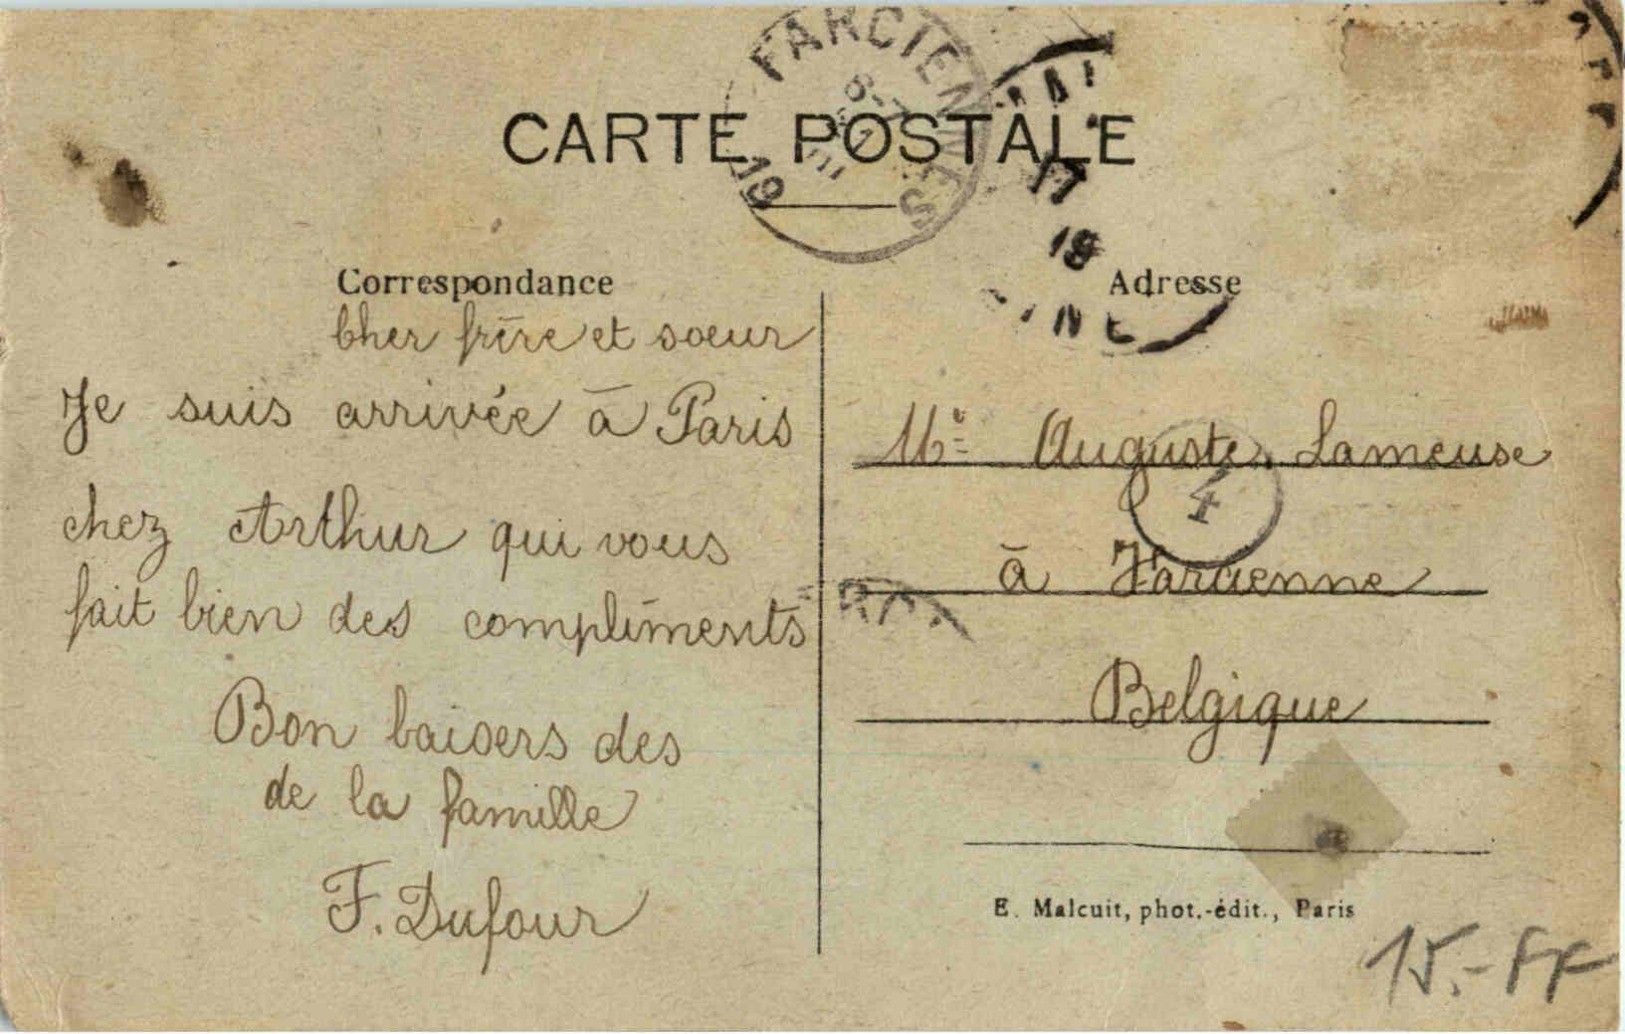 FARCIENNES
CARTE POSTALE
19
17
19
Correspondance
Cher frère et soeur
Je suis arrivée à Paris
chez Arthur qui vous
fait bien des compliments
Bon baisers des
de la famille
F. Dufour
Adresse
Mr Auguste Lameuse
4
à Farcienne
Belgique
E. Malcuit, phot.-édit., Paris
15.- FF